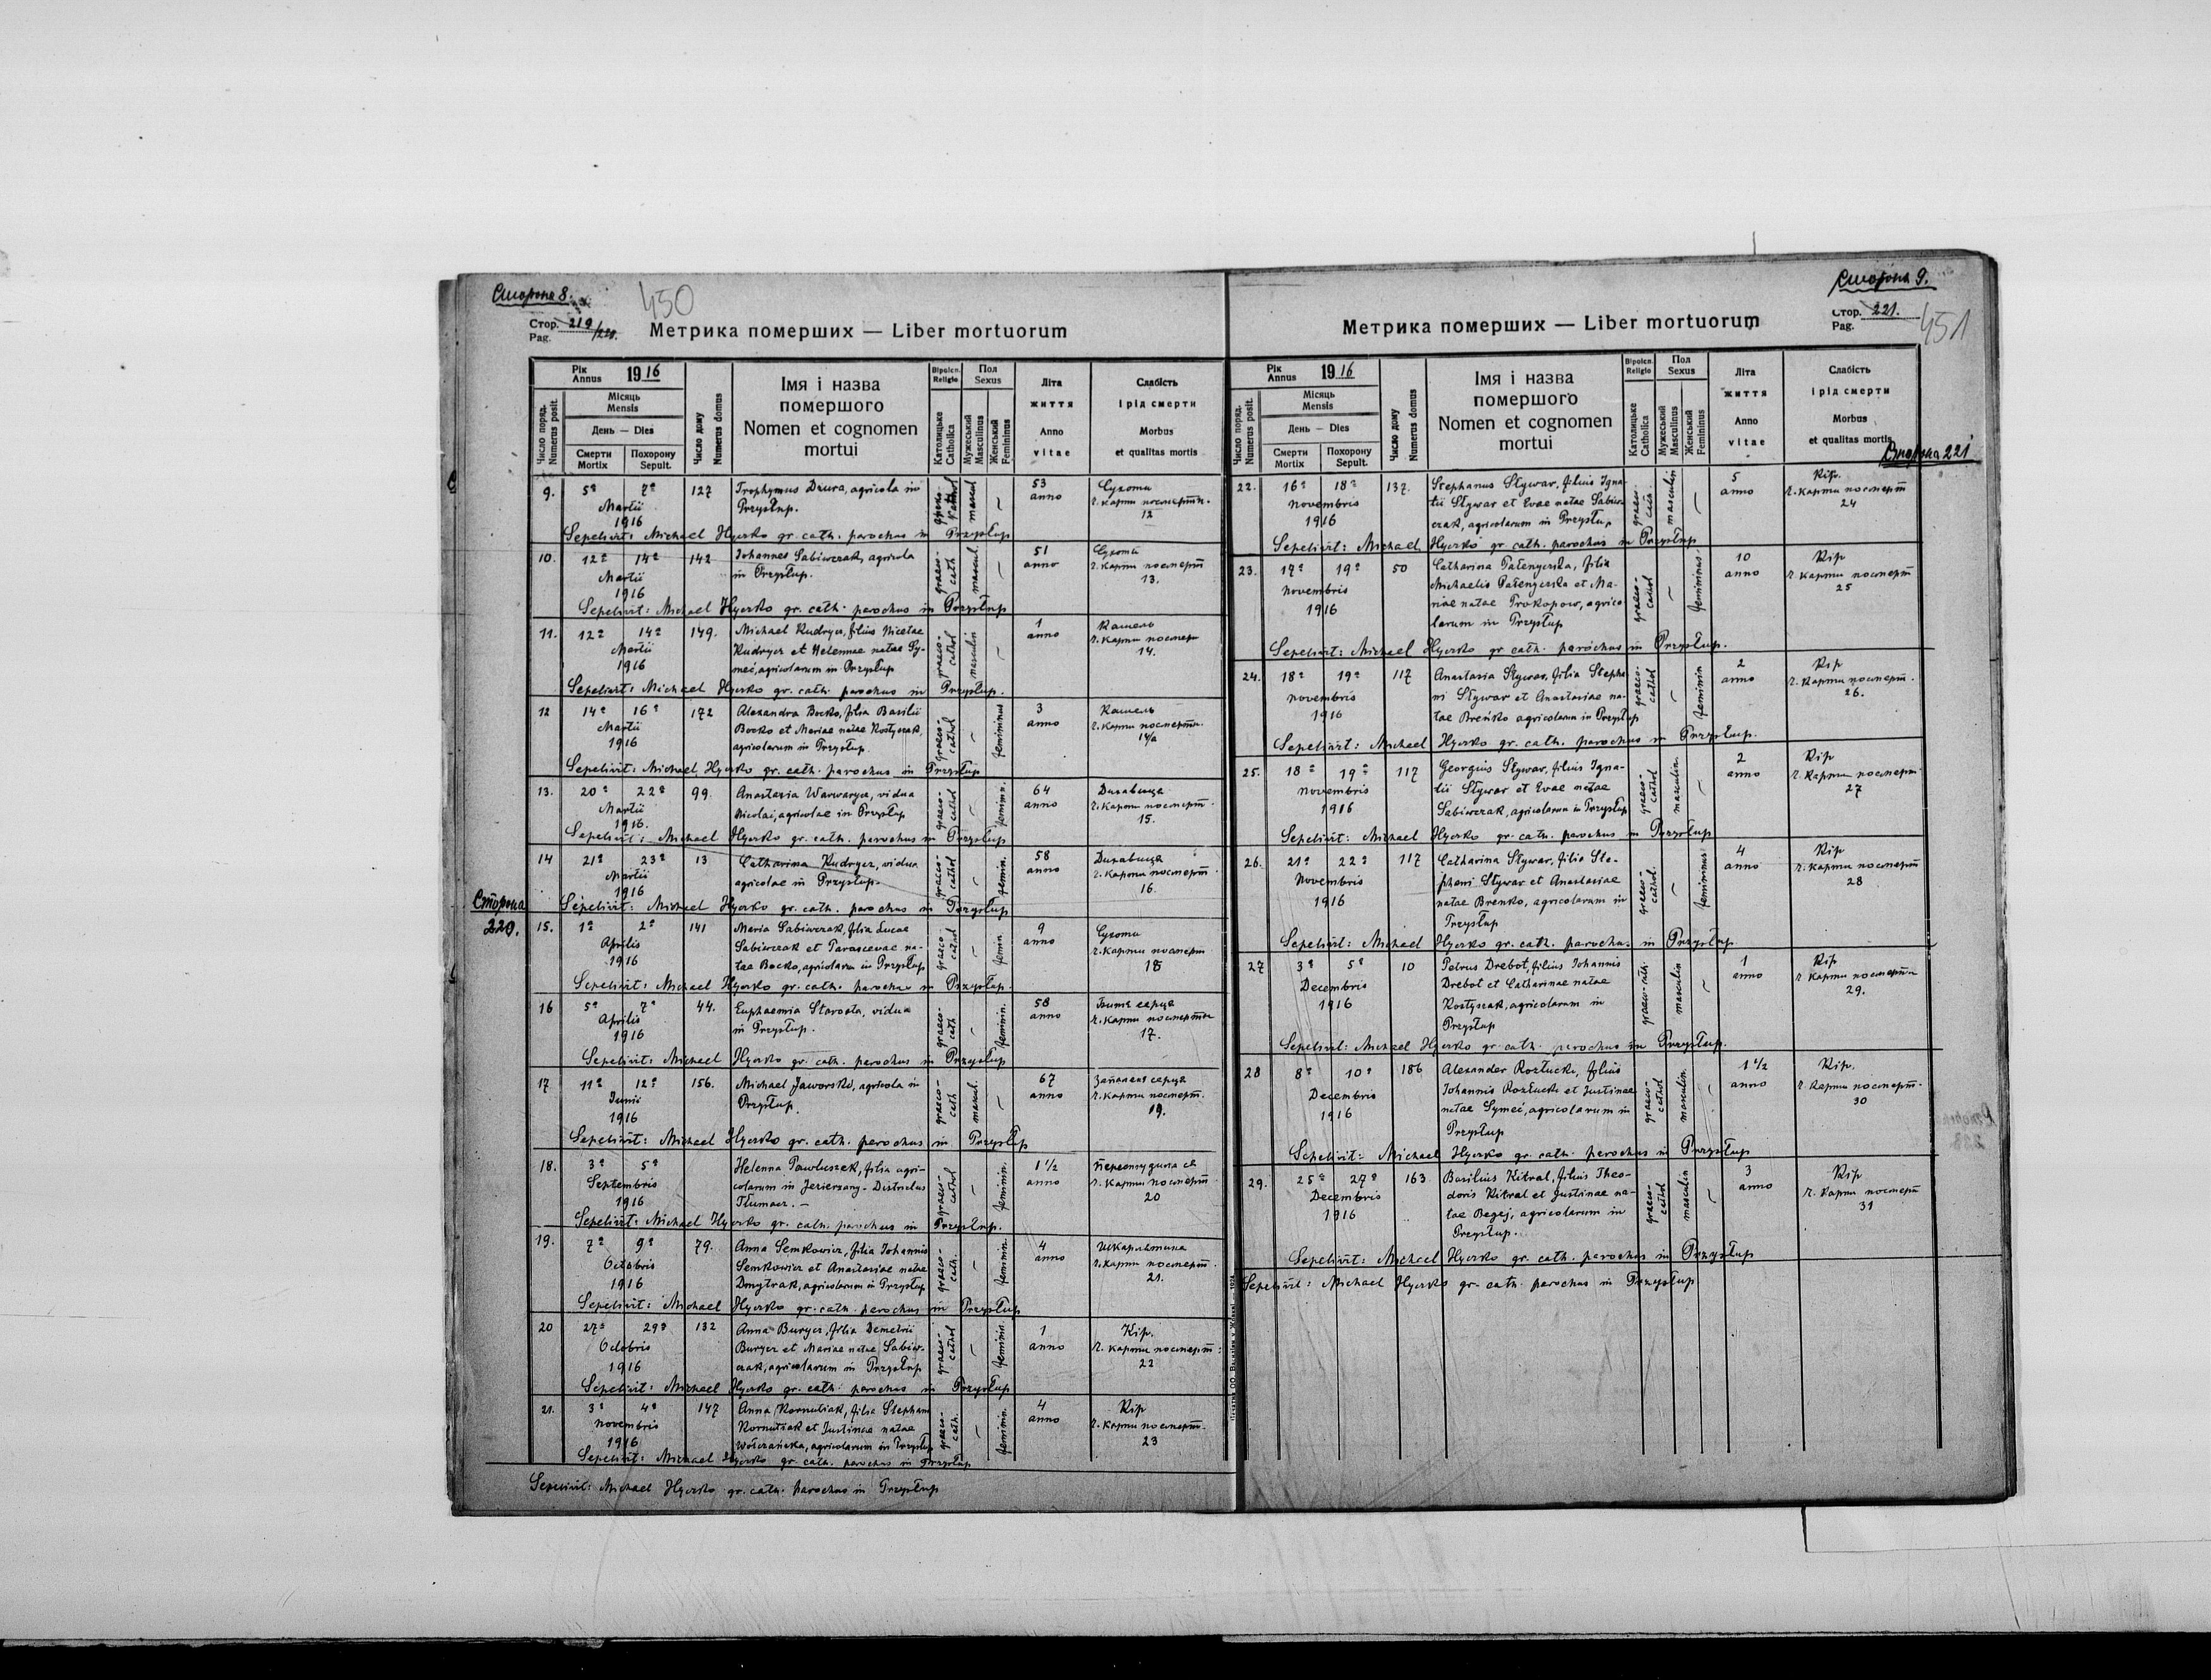 Сторона 8.
450
Стор. 219/220.
Pag.
Метрика померших — Liber mortuorum
Рік
Annus 1916
Місяць
Mensis
День — Dies
Смерти
Mortix
Похорону
Sepult.
Число поряд.
Numerus posit.
Число дому
Numerus domus
Імя і назва
помершого
Nomen et cognomen
mortui
Віроісп.
Religio
Католицьке
Catholica
Пол
Sexus
Мужеський
Masculinus
Женський
Femininus
Літа
життя
Anno
vitae
Слабість
і рід смерти
Morbus
et qualitas mortis
9. 5ª 7ª 127 Trophymus Dzura, agricola in graeco- cathol mascul — 53 Сухоти
Martii Przysłup. anno ч. карти посмертн.
1916 12
Sepelivit: Michael Hycko gr. cath. parochus in Przysłup
10. 12ª 14ª 142 Johannes Sabiwczak, agricola graeco- cath mascul. — 51 Сухоти
Martii in Przysłup. anno ч. карти посмерт
1916 13.
Sepelivit: Michael Hycko gr. cath. parochus in Przysłup
11. 12ª 14ª 149. Michael Kudrycz, filius Nicetae graeco- cathol masculin — 1 Кашель
Martii Kudrycz et Helennae natae Sy- anno ч. карти посмерт
1916 meć, agricolarum in Przysłup 14.
Sepelivit: Michael Hycko gr. cath. parochus in Przysłup.
12 14ª 16ª 172 Alexandra Bocko, filia Basilii graeco- cathol — femininus 3 Кашель
Martii Bocko et Mariae natae Kostyszak, anno ч. карти посмертн.
1916 agricolarum in Przysłup. 14/a
Sepelivit: Michael Hycko gr. cath. parochus in Przysłup
13. 20ª 22ª 99. Anastasia Warwarycz, vidua graeco- cathol — feminin. 64 Дихавиця
Martii Nicolai, agricolae in Przysłup anno ч. карти посмерт.
1916. 15.
Sepelivit: Michael Hycko gr. cath. parochus in Przysłup
14 21ª 23ª 13 Catharina Kudrycz, vidua graeco- cathol — femin. 58 Дихавиця
Martii agricolae in Przysłup. anno ч. карти посмерт
1916 16.
Sepelivit: Michael Hycko gr. cath. parochus in Przysłup
Сторона
220.
15. 1ª 2ª 141 Maria Sabiwczak, filia Lucae graeco- cathol — femin. 9 Сухоти
Aprilis Sabiwczak et Parascevae na- anno ч. карти посмерт
1916 tae Bocko, agricolarum in Przysłup 18
Sepelivit: Michael Hycko gr. cath. parochus in Przysłup.
16 5ª 7ª 44. Euphaemia Starosta, vidua graeco- cath — feminin. 58 Битя серця
Aprilis in Przysłup. anno ч. карти посмертн
1916 17.
Sepelivit: Michael Hycko gr. cath. parochus in Przysłup
17 11ª 12ª 156. Michael Jaworski, agricola in graeco- cath mascul. — 67 Запаленя серця
Junii Przysłup. anno ч. карти посмерт.
1916 19.
Sepelivit: Michael Hycko gr. cath. parochus in Przysłup
18. 3ª 5ª Helenna Pawluszek, filia agri- graeco- cathol — feminin. 1 1/2
Septembris colarum in Jezierzany - Districtus anno ч. карти посмерт
1916 Tłumacz. — 20
Sepelivit: Michael Hycko gr. cath. parochus in Przysłup.
19. 7ª 9ª 79. Anna Semkowicz, filia Johannis graeco- cath. — feminin. 4 шкарлятина
Octobris Semkowicz et Anastasiae natae anno ч. карти посмерт.
1916 Dmytrak, agricolarum in Przysłup 21.
Sepelivit: Michael Hycko gr. cath. parochus in Przysłup
20 27ª 29ª 132 Anna Burycz, filia Demetrii graeco- cathol — feminin. 1 Кір.
Octobris Burycz et Mariae natae Sabiw- anno ч. карти посмерт.
1916 czak, agricolarum in Przysłup 22
Sepelivit: Michael Hycko gr. cath. parochus in Przysłup
21. 3ª 4ª 147 Anna Kornutiak, filia Stephani graeco- cath. — feminin. 4 Кір
Novembris Kornutiak et Justinae natae anno ч. карти посмерт.
1916 Wołczańska, agricolarum in Przysłup 23
Sepelivit: Michael Hycko gr. cath. parochus in Przysłup
Sepelivit: Michael Hycko gr. cath. parochus in Przysłup
Сторона 9.
Стор. 221.
Pag.
451
Метрика померших — Liber mortuorum
Рік
Annus 1916
Місяць
Mensis
День — Dies
Смерти
Mortix
Похорону
Sepult.
Число поряд.
Numerus posit.
Число дому
Numerus domus
Імя і назва
помершого
Nomen et cognomen
mortui
Віроісп.
Religio
Католицьке
Catholica
Пол
Sexus
Мужеський
Masculinus
Женський
Femininus
Літа
життя
Anno
vitae
Слабість
і рід смерти
Morbus
et qualitas mortis
Сторона 221
22. 16ª 18ª 137. Stephanus Stywar, filius Igna- graeco- cath. masculin — 5 Кір.
Novembris tii Stywar et Evae natae Sabiw- anno ч. карти посмерт
1916 czak, agricolarum in Przysłup 24
Sepelivit: Michael Hycko gr. cath. parochus in Przysłup
23. 17ª 19ª 50 Catharina Patenycka, filia graeco- cathol — femininus. 10 Кір
Novembris Michaelis Patenycka et Ma- anno ч. карти посмерт
1916 riae natae Prokopow, agrico- 25
larum in Przysłup
Sepelivit: Michael Hycko gr. cath. parochus in Przysłup.
24. 18ª 19ª 117 Anastasia Stywar, filia Stepha- graeco- cathol — feminin 2 Кір
Novembris ni Stywar et Anastasiae na- anno ч. карти посмерт.
1916 tae Breńko agricolarum in Przysłup 26.
Sepelivit: Michael Hycko gr. cath. parochus in Przysłup.
25. 18ª 19ª 117 Georgius Stywar, filius Igna- graeco- cathol masculin. — 2 Кір
Novembris tii Stywar et Evae natae anno ч. карти посмерт
1916 Sabiwczak, agricolarum in Przysłup 27
Sepelivit: Michael Hycko gr. cath. parochus in Przysłup
26. 21ª 22ª 117 Catharina Stywar, filia Ste- graeco- cathol. — femininus 4 Кір
Novembris phani Stywar et Anastasiae anno ч. карти посмерт
1916 natae Breńko, agricolarum in 28
Przysłup
Sepelivit: Michael Hycko gr. cath. parochus in Przysłup.
27 3ª 5ª 10 Petrus Drebot, filius Johannis graeco-cath. masculin — 1 Кір
Decembris Drebot et Catharinae natae anno ч. карти посмертн
1916 Kostyszak, agricolarum in 29.
Przysłup
Sepelivit: Michael Hycko gr. cath. parochus in Przysłup.
28 8ª 10ª 186 Alexander Rozłucki, filius graeco- cathol masculin. — 1 1/2 Кір.
Decembris Johannis Rozłucki et Justinae anno ч. карти посмерт.
1916 natae Symeć, agricolarum in 30
Przysłup
Sepelivit: Michael Hycko gr. cath. parochus in Przysłup
29. 25ª 27ª 163 Basilius Kitral, filius Theo- graeco- cathol masculin — 3 Кір
Decembris doris Kitral et Justinae na- anno ч. карти посмерт
1916 tae Begej, agricolarum in 31
Przysłup.
Sepelivit: Michael Hycko gr. cath. parochus in Przysłup
Sepelivit: Michael Hycko gr. cath. parochus in Przysłup